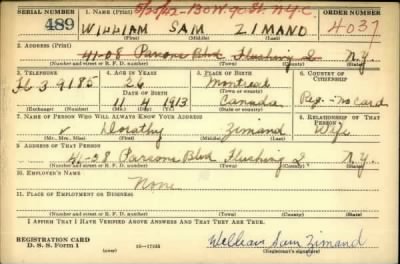 5/20/42-130 W. 90 St. N.Y.C.
SERIAL NUMBER 1. NAME (Print) ORDER NUMBER
489 WILLIAM SAM ZIMAND 4037
(First) (Middle) (Last)
2. ADDRESS (Print)
41-08 Parsons Blvd Flushing N.Y.
(Number and street or R. F. D. number) (Town) (County) (State)
3. TELEPHONE 4. AGE IN YEARS 5. PLACE OF BIRTH 6. COUNTRY OF CITIZENSHIP
FL 3 9185 26 Montreal
DATE OF BIRTH (Town or county)
11 4 1913 Canada Reg.-no card
(Exchange) (Number) (Mo.) (Day) (Yr.) (State or country)
7. NAME OF PERSON WHO WILL ALWAYS KNOW YOUR ADDRESS 8. RELATIONSHIP OF THAT PERSON
Dorothy Zimand Wife
(Mr., Mrs., Miss) (First) (Middle) (Last)
9. ADDRESS OF THAT PERSON
41-08 Parsons Blvd Flushing N.Y.
(Number and street or R. F. D. number) (Town) (County) (State)
10. EMPLOYER'S NAME
None
11. PLACE OF EMPLOYMENT OR BUSINESS
(Number and street or R. F. D. number) (Town) (County) (State)
I AFFIRM THAT I HAVE VERIFIED ABOVE ANSWERS AND THAT THEY ARE TRUE.
REGISTRATION CARD
D. S. S. Form 1 16-17105 William Sam Zimand
(Registrant's signature)